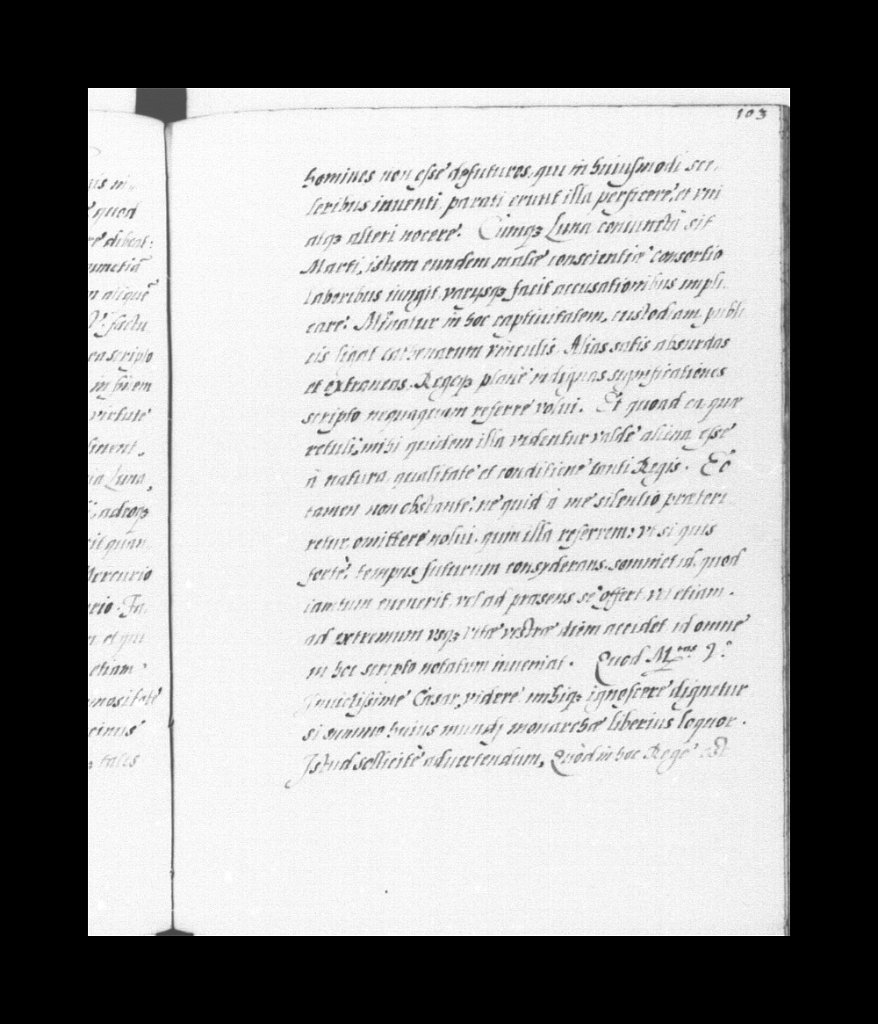 103
homines non esse defuturos, qui in huiusmodi sce,
leribus inventi parati erunt illa perficere, et uni
atq; alteri nocere. Cumq; Luna coniuncta sit
Marti, istum eundem malæ conscientiæ consortio
laboribus iungit, varijsq; facit accusationibus impli,
care. Minatur in hoc captivitatem, custodiam publi
cis ligat cathenarum vinculis. Alias satis absurdas
et extraneas. Regeq; planè indignas significationes
scripto nequaquam referre volui. Et quoad ea quæ
retuli, mihi quidem illa videntur valde aliena esse
à natura, qualitate et conditione tanti Regis. Eo
tamen non obstante, ne quid à me silentio præteri
retur, omittere nolui. quin illa referrem, vt si quis
fortè, tempus futurum consyderans, somniet id, quod
iam tum evenerit, vel ad præsens se offert vel etiam.
ad extremum vsq; vitæ vestræ diem accidet id omne
in hoc scripto notatum inveniat. Quod M.tas V.a
Invictissime Cæsar, videre mihiq; ignoscere dignetur
si summo huius mundj monarchæ liberius loquor.
Istud sollicitè advertendum, Quòd in hoc Rege est
quod
ea scripto
virtute
ia Luna,
adeoq;
Mercurio
etiam
tales